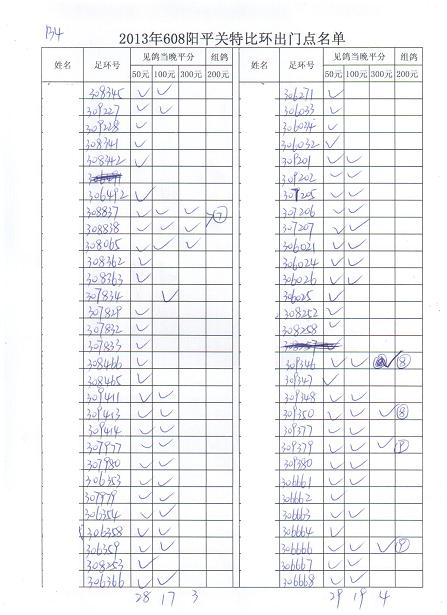 B4
2013年608阳平关特比环出门点名单
姓名 足环号 见鸽当晚平分 组鸽 姓名 足环号 见鸽当晚平分 组鸽
50元 100元 300元 200元 50元 100元 300元 200元
308345 ✓ 306271 ✓
309227 ✓ ✓ 306033 ✓
309228 ✓ 306034 ✓
308341 ✓ 306032 ✓
308342 ✓ 309201 ✓ ✓
309202 ✓ ✓
306492 ✓ 307205 ✓ ✓
308837 ✓ ✓ ✓ ⑦ 307206 ✓ ✓
308838 ✓ ✓ ✓ 307207 ✓ ✓
308065 ✓ ✓ ✓ 306021 ✓ ✓
308362 ✓ 306024 ✓ ✓
308363 ✓ 306026 ✓ ✓
307834 ✓ 306025 ✓
307829 ✓ 308252 ✓
307832 ✓ 308258 ✓
307833 ✓
308466 ✓ 309346 ✓ ✓ ✓ ⑧
308465 ✓ 309347 ✓
309411 ✓ ✓ 309348 ✓ ✓
309413 ✓ ✓ 309350 ✓ ✓ ✓ ⑧
309414 ✓ ✓ 309377 ✓ ✓
307977 ✓ ✓ 309379 ✓ ✓ ✓ ⑨
307980 ✓ ✓ 309380 ✓ ✓
306353 ✓ ✓ 306661 ✓ ✓
307979 ✓ ✓ 306662 ✓
306354 ✓ ✓ 306663 ✓ ✓
306358 ✓ ✓ 306664 ✓
306359 ✓ ✓ 306666 ✓ ✓ ✓ ⑨
308253 ✓ 306667 ✓ ✓
306366 ✓ ✓ 306668 ✓ ✓
28 17 3 29 19 4